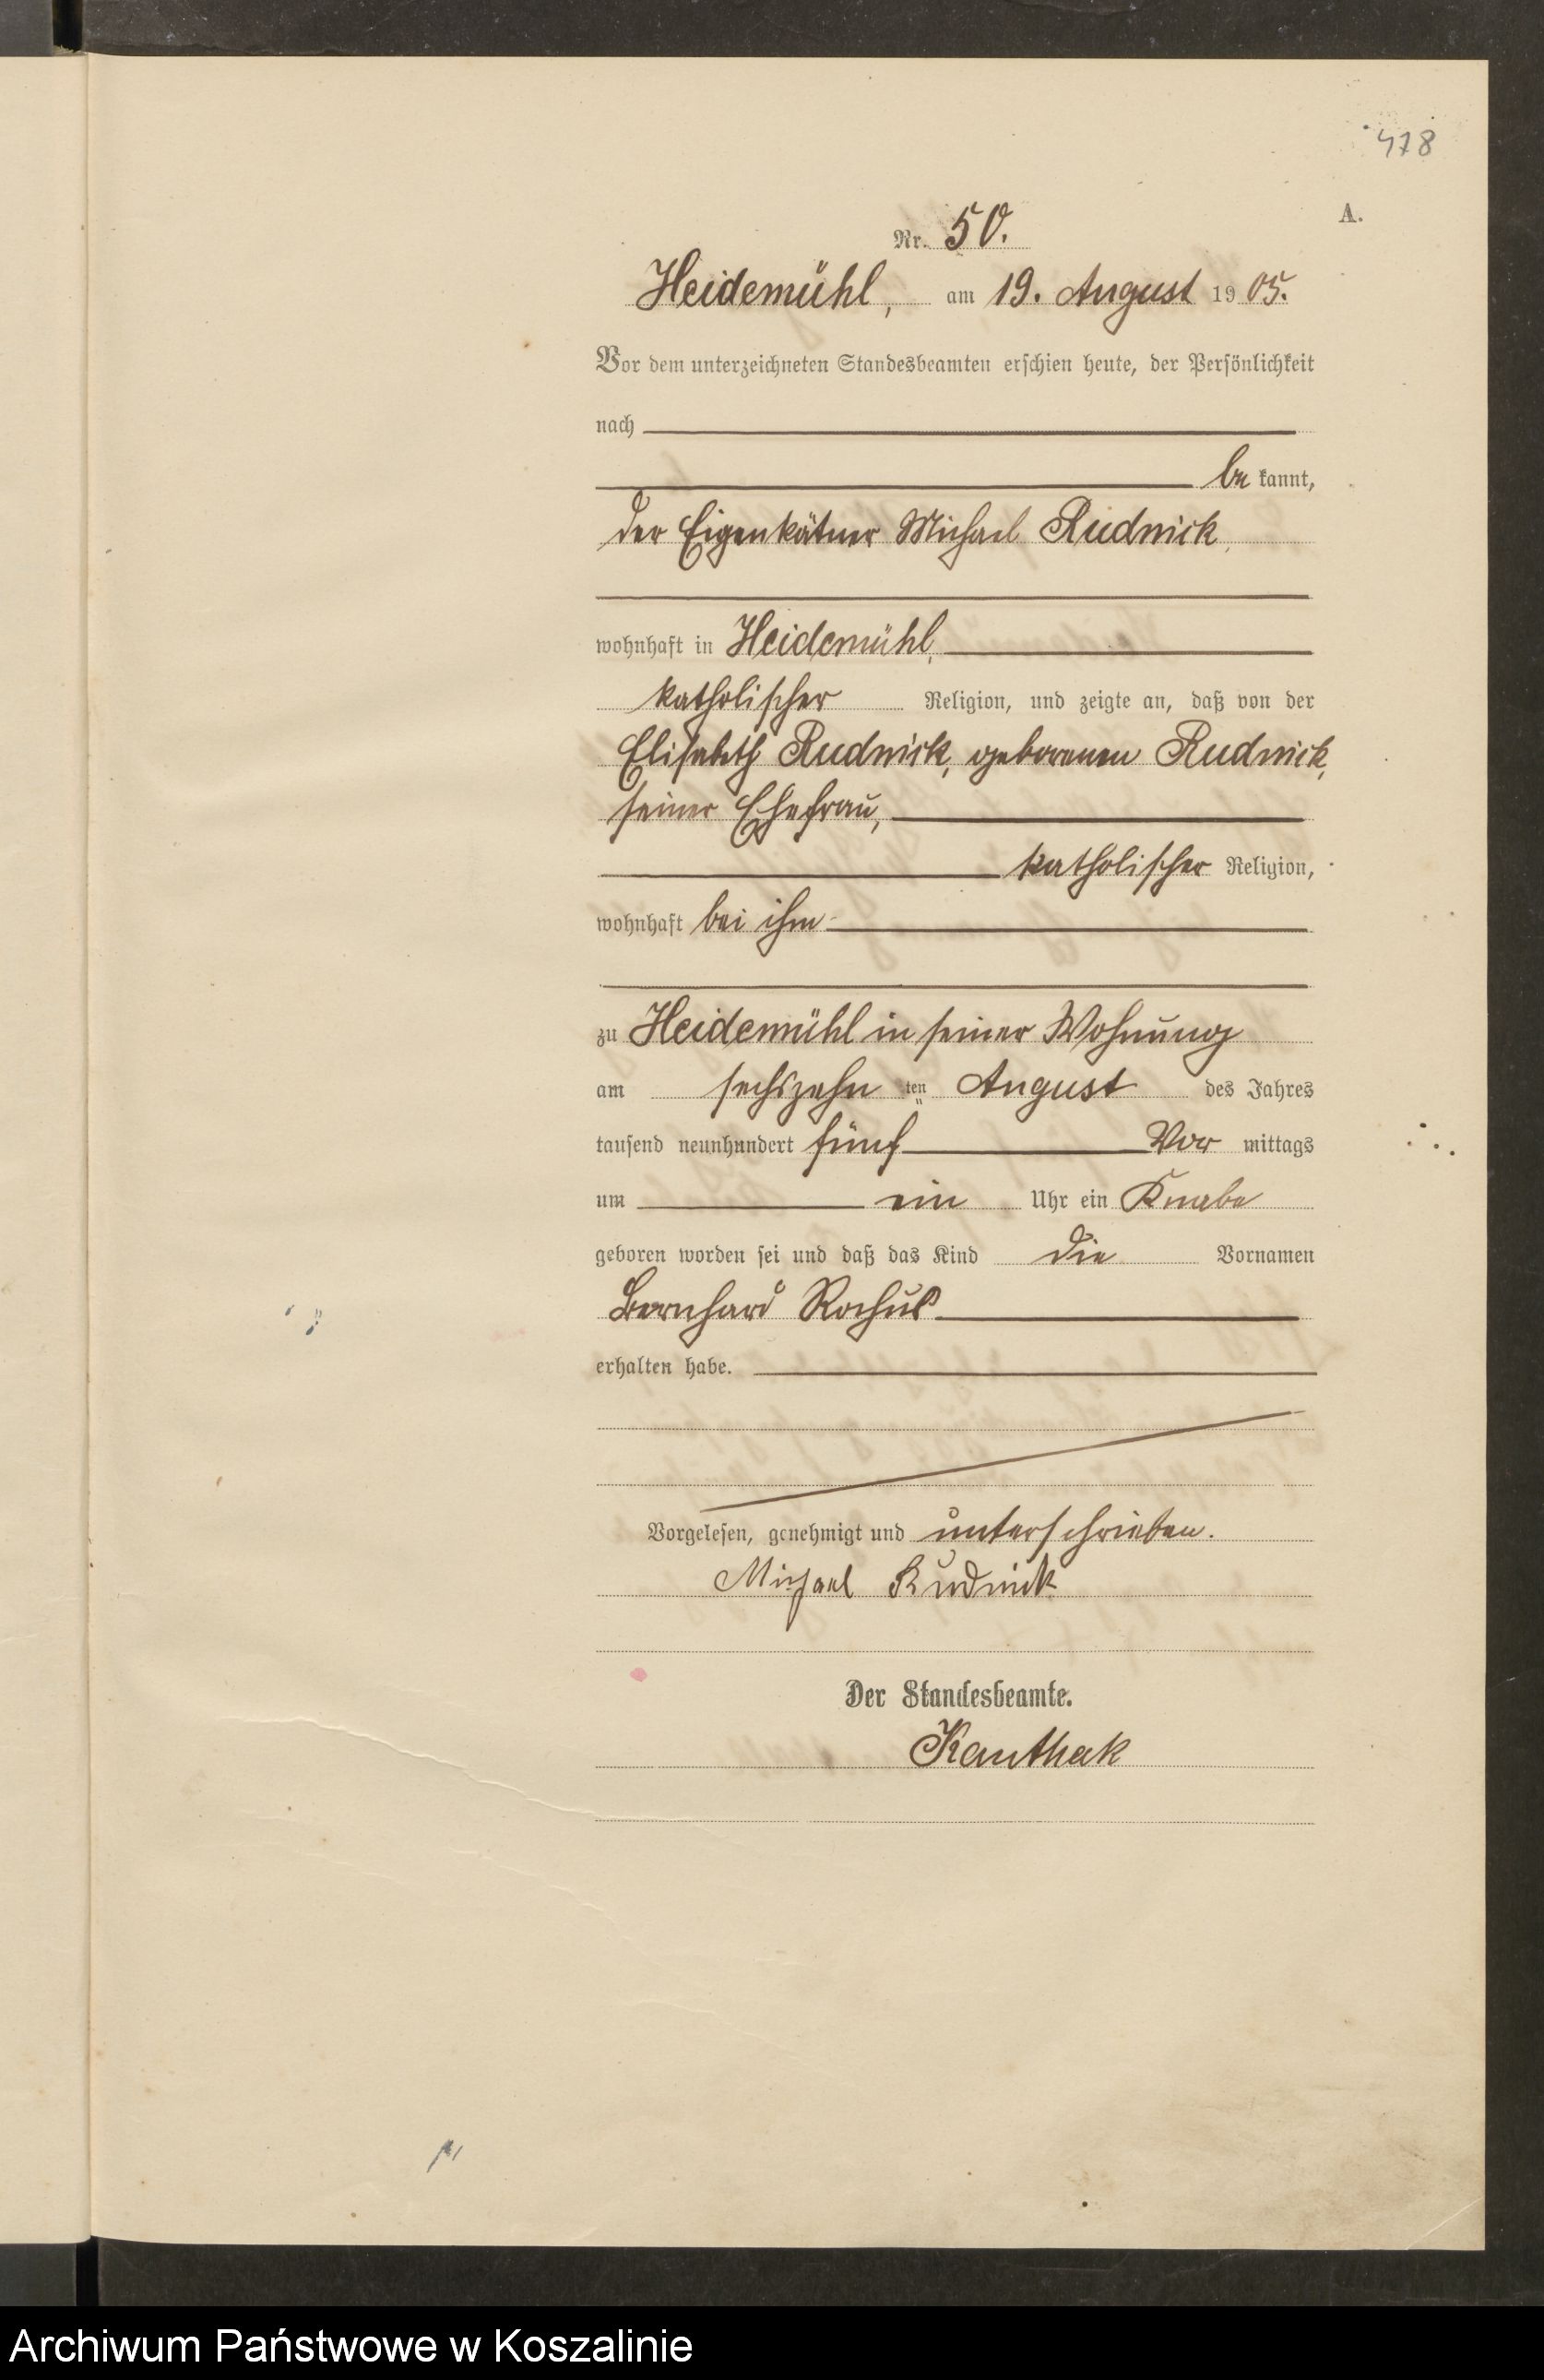 478
A.
Nr. 50.
Heidemühl, am 19. August 1905.
Vor dem unterzeichneten Standesbeamten erschien heute, der Persönlichkeit
nach
be kannt,
der Eigenkätner Michael Rudnick,
wohnhaft in Heidemühl,
katholischer Religion, und zeigte an, daß von der
Elisabeth Rudnick, geborenen Rudnick,
seiner Ehefrau,
katholischer Religion,
wohnhaft bei ihm
zu Heidemühl in seiner Wohnung
am sechszehn ten August des Jahres
tausend neunhundert fünf Vor mittags
um ein Uhr ein Knabe
geboren worden sei und daß das Kind die Vornamen
Bernhard Rochus
erhalten habe.
Vorgelesen, genehmigt und unterschrieben.
Michael Rudnick
Der Standesbeamte.
Kanthak
Archiwum Państwowe w Koszalinie